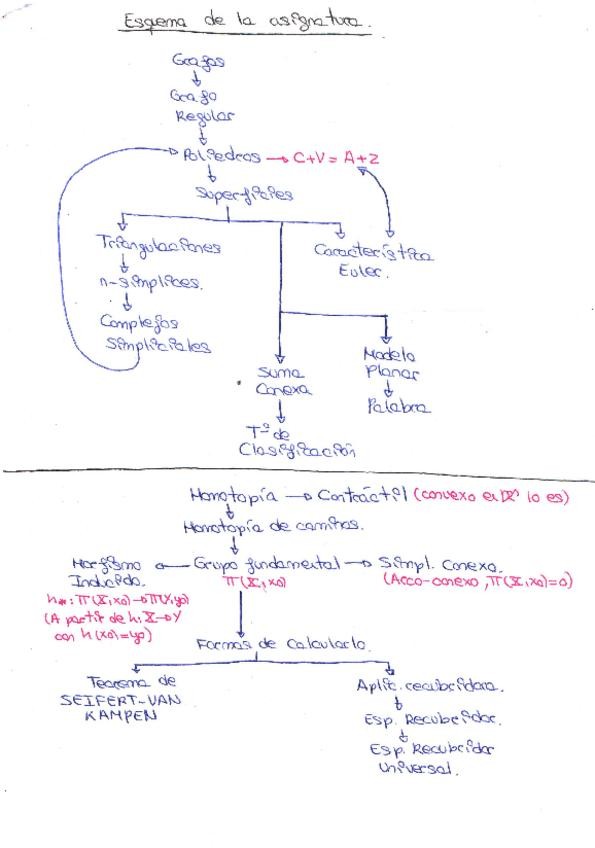 Esquema de la asignatura.
Grafos
Grafo
Regular
Poliedros → C+V = A+2
Superficies
Triangulaciones
Característica
Euler.
n-símplices.
Complejos
Simpliciales
Suma
Conexa
Modelo
Planar
Palabra
Tª de
Clasificación
Homotopía → Contráctil (convexo en ℝⁿ lo es)
Homotopía de caminos.
Morfismo ← Grupo fundamental → Simpl. Conexo.
Inducido.
π(X,x0)
(Arco-conexo, π(X,x0)=0)
h*: π(X,x0)→π(Y,y0)
(A partir de h: X→Y
con h(x0)=y0)
Formas de calcularlo.
Teorema de
SEIFERT-VAN
KAMPEN
Aplic. recubridora.
Esp. Recubridor.
Esp. Recubridor
Universal.